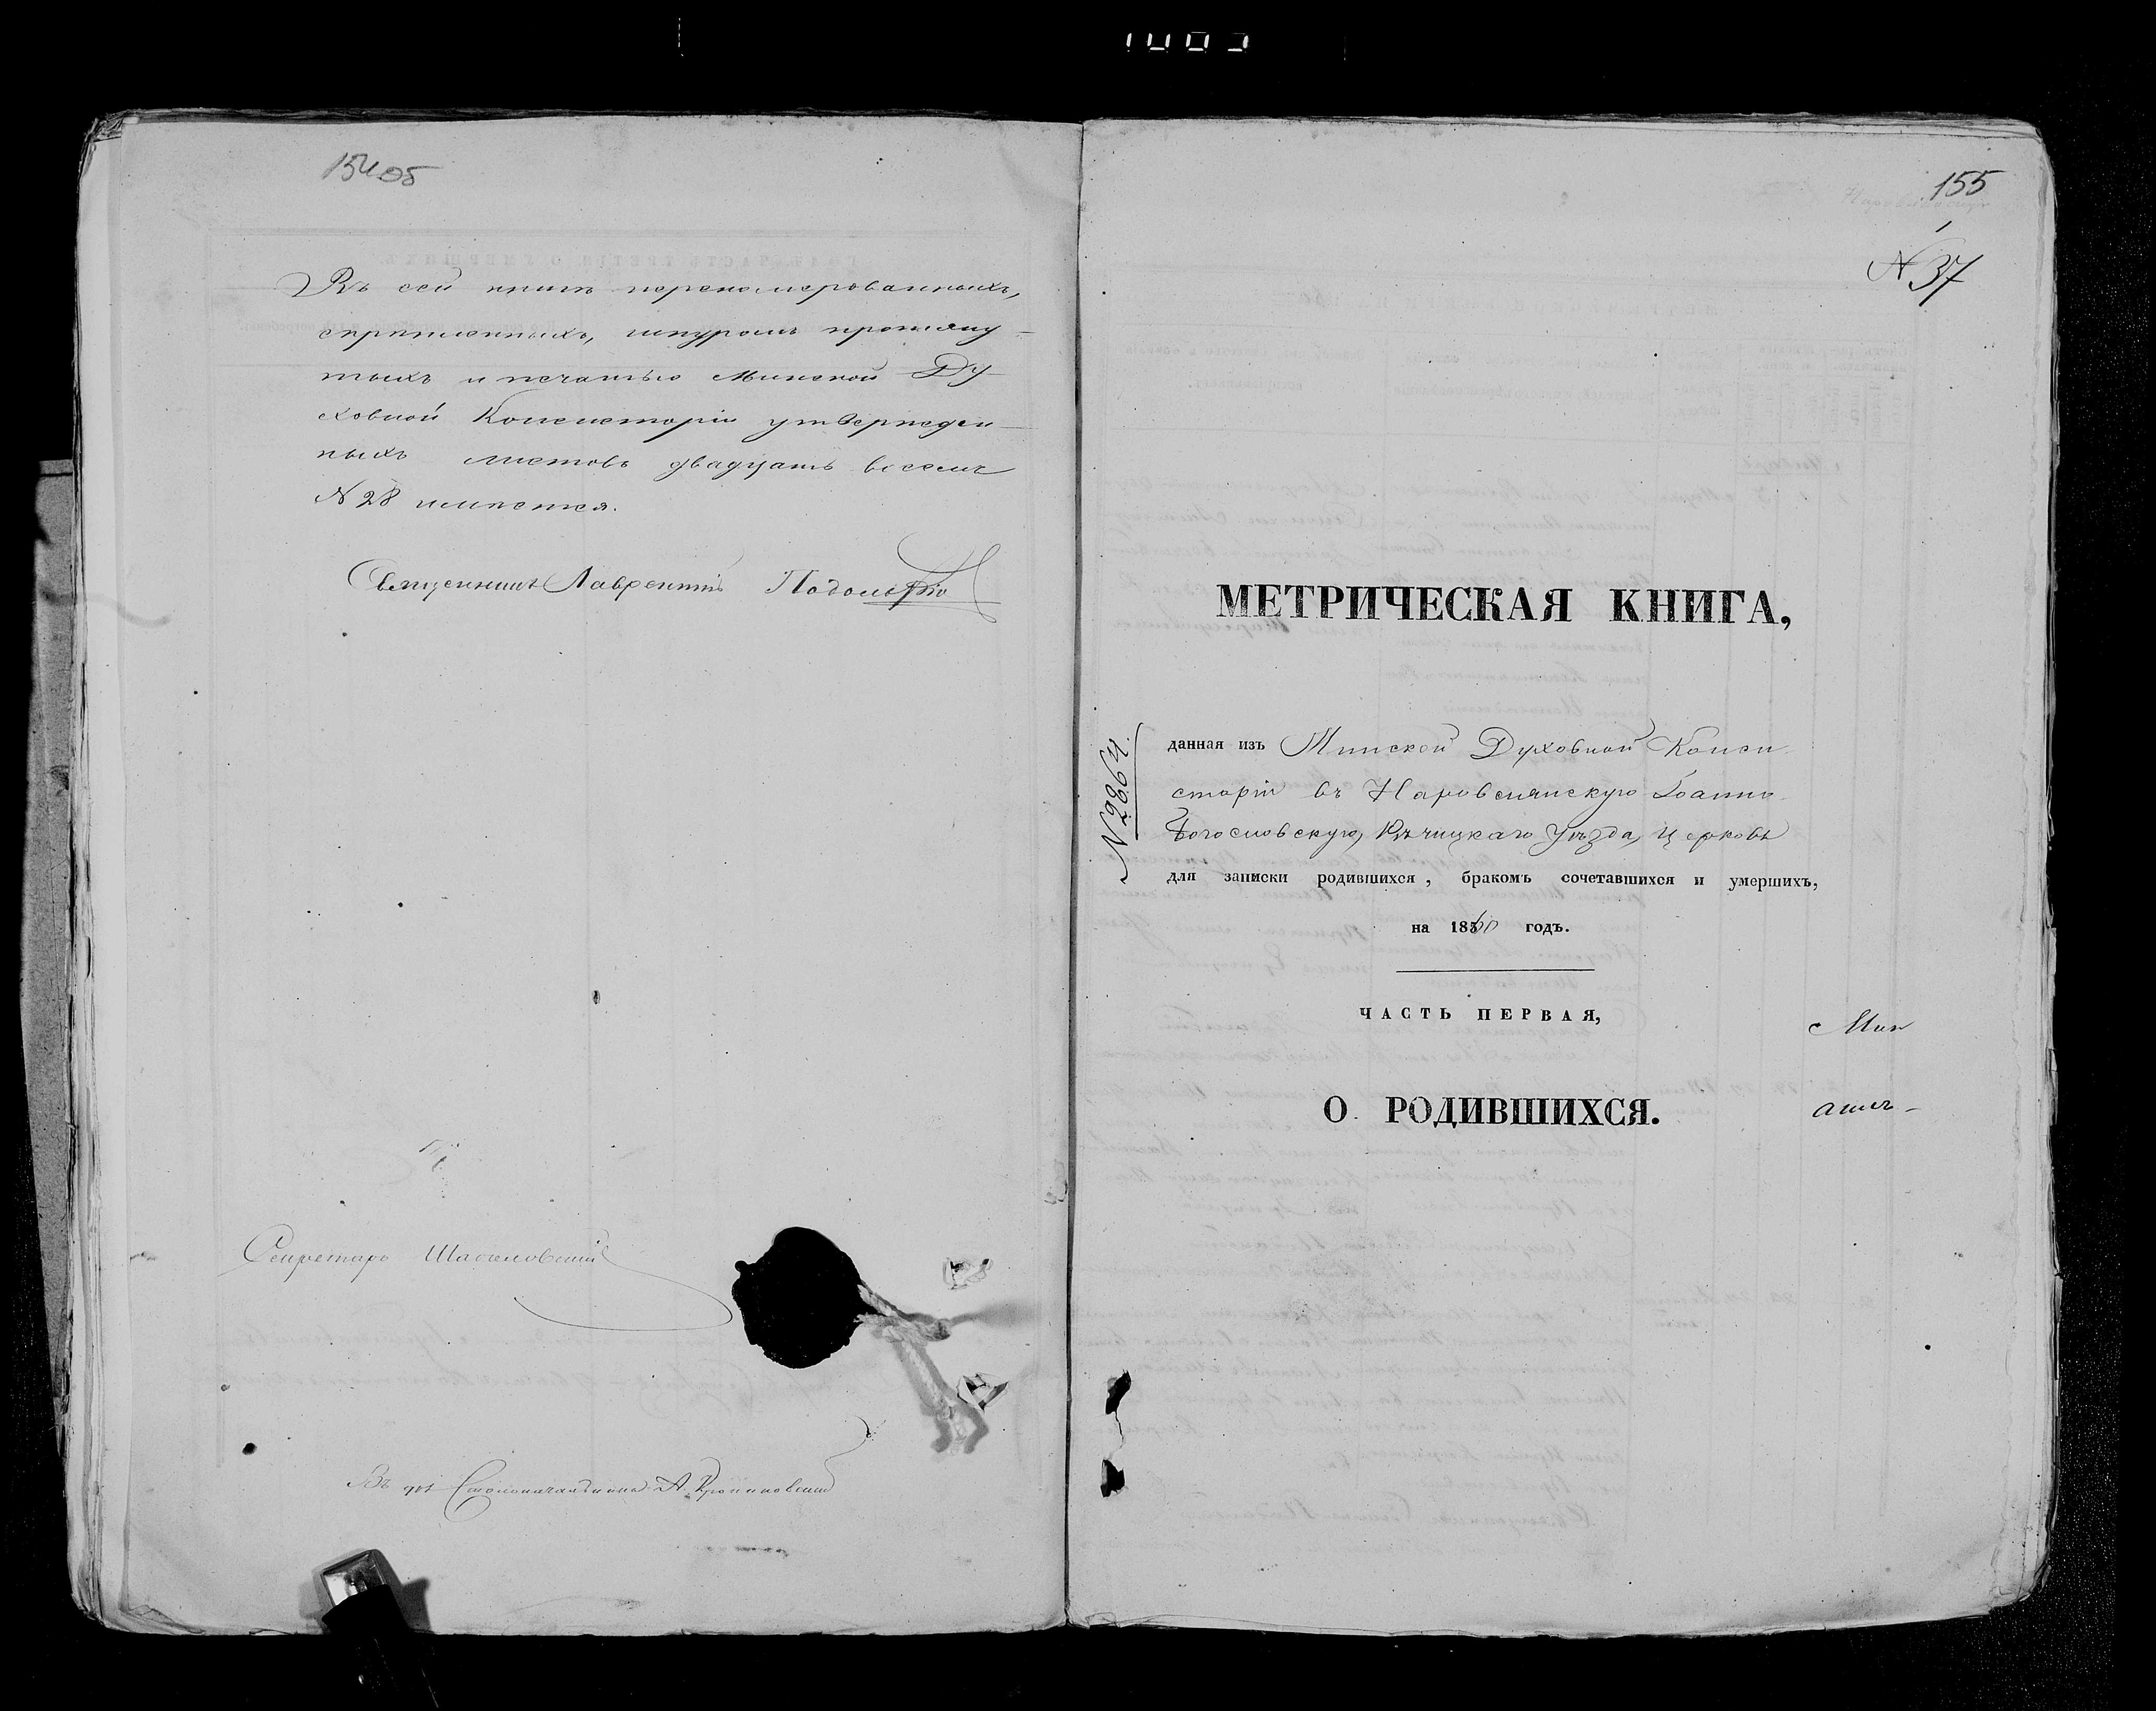 154об
Въ сей книгѣ перенумерованныхъ,
скрѣпленныхъ, шнуромъ протяну-
тыхъ и печатью Минской Ду-
ховной Консисторіи утвержден-
ныхъ листовъ двадцать восемь
N 28 имѣется.
Священникъ Лаврентій
Секретарь
Въ д. Столоначальника А.
155
N 37
МЕТРИЧЕСКАЯ КНИГА,
N 2864.
данная изъ Минской Духовной Конси-
сторіи въ Наровлянскую Іоанно-
Богословскую, Рѣчицкаго уѣзда, церковь
для записки родившихся, бракомъ сочетавшихся и умершихъ,
на 1860 годъ.
ЧАСТЬ ПЕРВАЯ,
Мин
О РОДИВШИХСЯ.